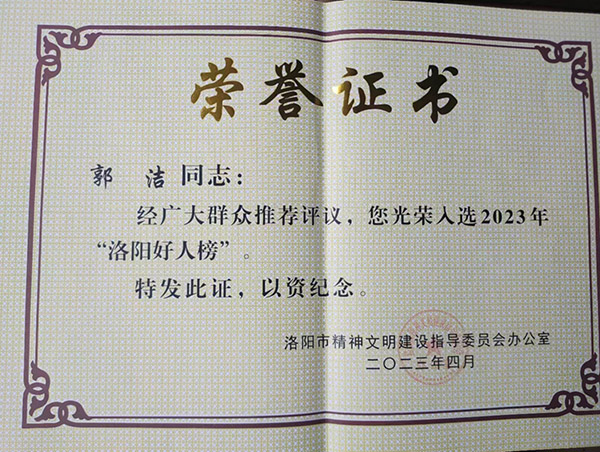 荣誉证书
郭 洁 同志：
经广大群众推荐评议，您光荣入选2023年
“洛阳好人榜”。
特发此证，以资纪念。
洛阳市精神文明建设指导委员会办公室
二〇二三年四月